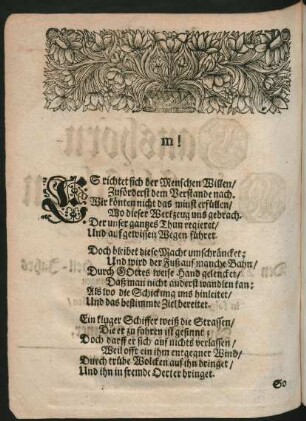 m!
ES richtet sich der Menschen Willen/
Zuförderst dem Verstande nach.
Wir könten nicht das minst erfüllen/
Wo dieser Werkzeug uns gebrach.
Der unser gantzes Thun regieret/
Und auf gewissen Wegen führet.
Doch bleibet diese Macht umschräncket;
Und wird der Fuß auf manche Bahn/
Durch GOttes weise Hand gelencket/
Daß man nicht anderst wandlen kan:
Als wo die Schickung uns hinleitet/
Und das bestimmte Ziel bereitet.
Ein kluger Schiffer weiß die Strassen/
Die er zu fahren ist gesinnt;
Doch darff er sich auf nichts verlassen/
Weil offt ein ihm entgegner Wind/
Durch trübe Wolcken auf ihn dringet/
Und ihn in fremde Oerter bringet.
So